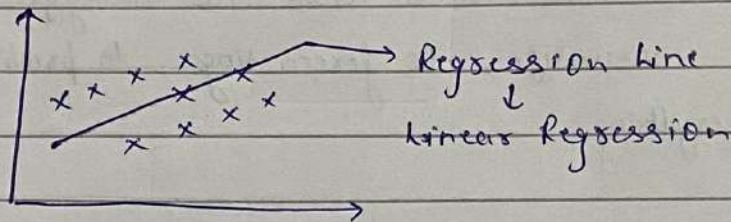 Regression Line
Linear Regression